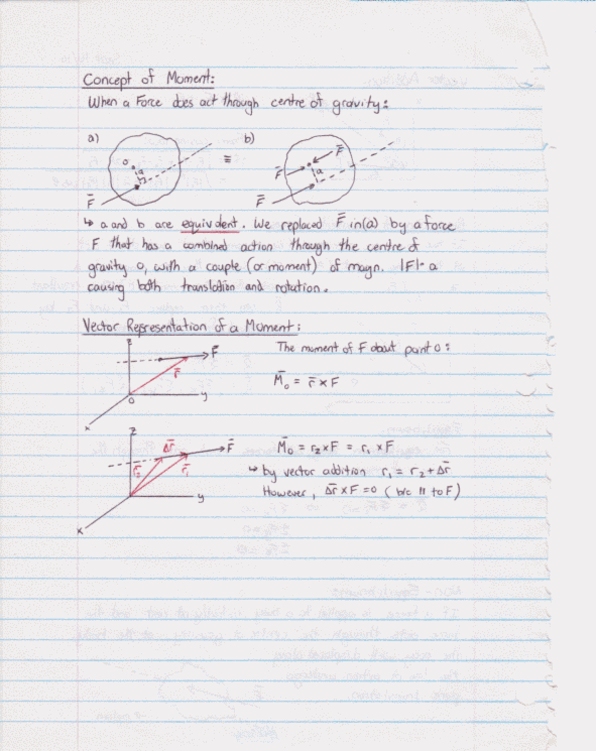 Concept of Moment:
When a Force does act through centre of gravity:
a)
b)
O
a
F̄
≡
F̄
F̄
a
F̄
↳ a and b are equivalent. We replaced F̄ in (a) by a force
F that has a combined action through the centre of
gravity O, with a couple (or moment) of magn. |F|· a
causing both translation and rotation.
Vector Representation of a Moment:
z
F̄
r̄
O
y
x
The moment of F about point O:
M̄o = r̄ x F
z
Δr̄
F̄
r̄2
r̄1
y
x
M̄o = r2 x F = r1 x F
↳ by vector addition r1 = r2 + Δr̄
However, Δr̄ x F = 0 (b/c || to F)